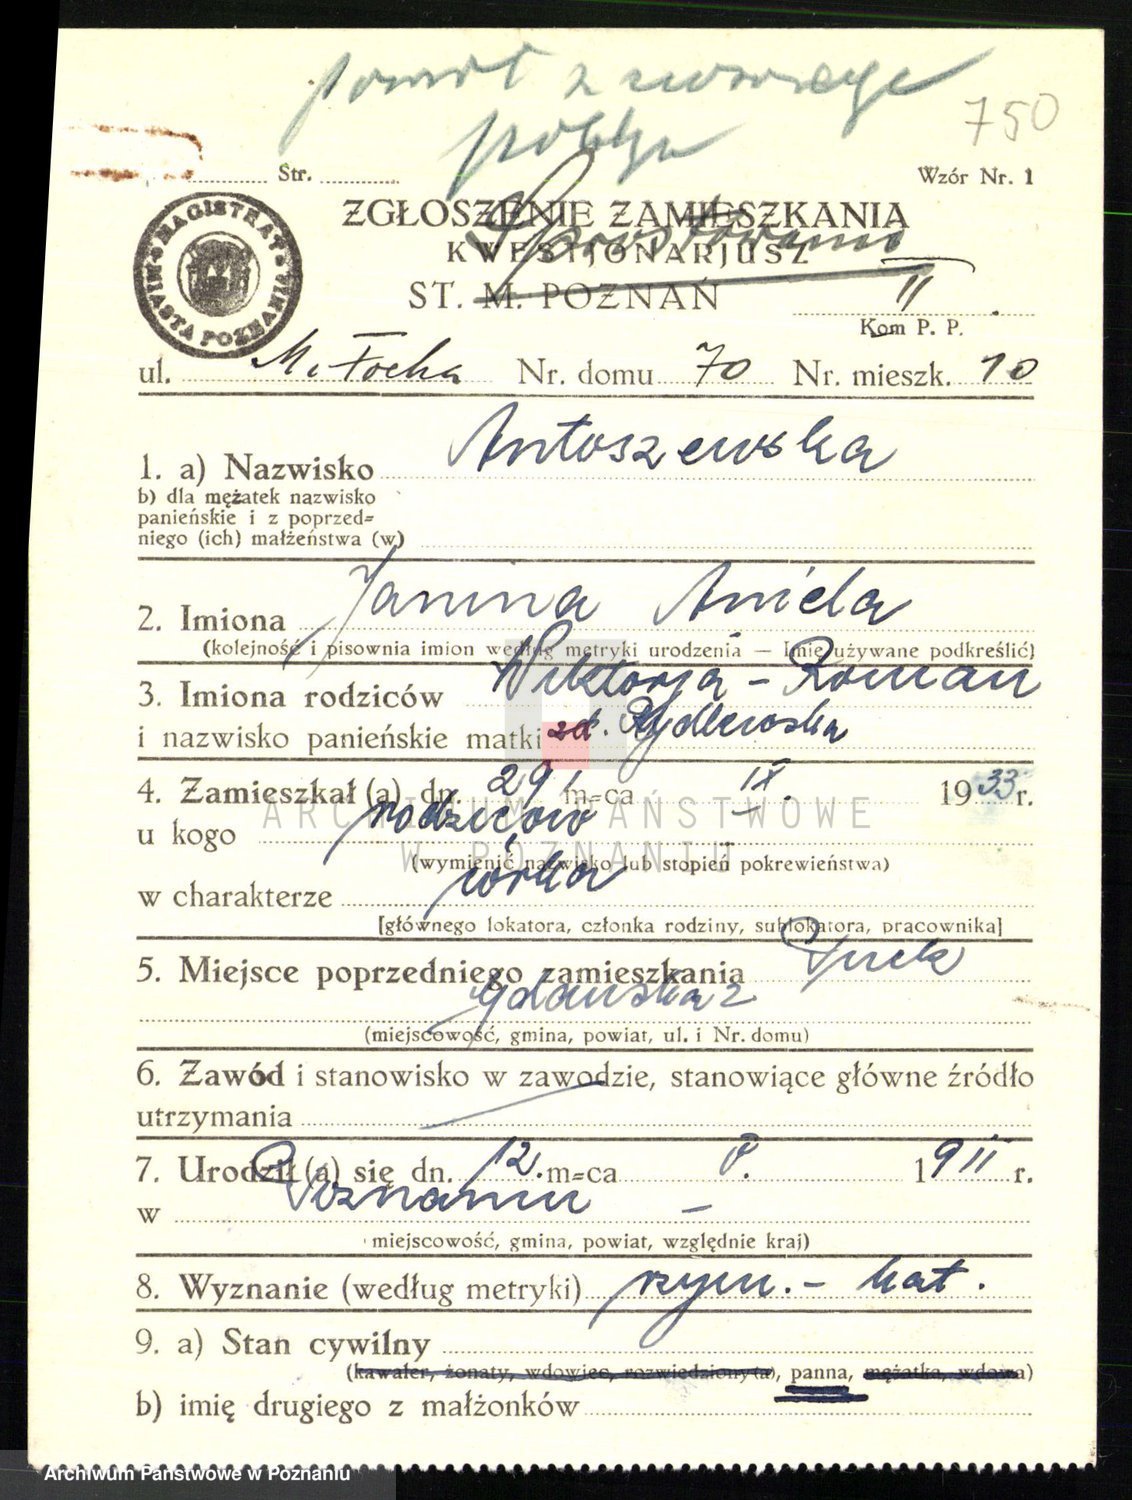 powrót z
750
Str.
Wzór Nr. 1
MAGISTRAT MIASTA POZNANIA
ZGŁOSZENIE ZAMIESZKANIA
KWESTJONARJUSZ
ST. M. POZNAŃ
II
Kom P. P.
ul. M. Focha Nr. domu 70 Nr. mieszk. 10
1. a) Nazwisko Antoszewska
b) dla mężatek nazwisko
panieńskie i z poprzed=
niego (ich) małżeństwa (w)
2. Imiona Janina Aniela
(kolejność i pisownia imion według metryki urodzenia — Imię używane podkreślić)
3. Imiona rodziców Wiktorja - Roman
i nazwisko panieńskie matki zd.
4. Zamieszkał (a) dn. 29 m=ca IX. 1933 r.
u kogo rodziców
(wymienić nazwisko lub stopień pokrewieństwa)
w charakterze córka
[głównego lokatora, członka rodziny, sublokatora, pracownika]
5. Miejsce poprzedniego zamieszkania Puck
Gdańska 2
(miejscowość, gmina, powiat, ul. i Nr. domu)
6. Zawód i stanowisko w zawodzie, stanowiące główne źródło
utrzymania
7. Urodził (a) się dn. 12. m=ca V. 1911 r.
w Poznaniu -
miejscowość, gmina, powiat, względnie kraj)
8. Wyznanie (według metryki) rzym. - kat.
9. a) Stan cywilny
(kawaler, żonaty, wdowiec, rozwiedziony (a), panna, mężatka, wdowa)
b) imię drugiego z małżonków
ARCHIWUM PAŃSTWOWE
W POZNANIU
Archiwum Państwowe w Poznaniu